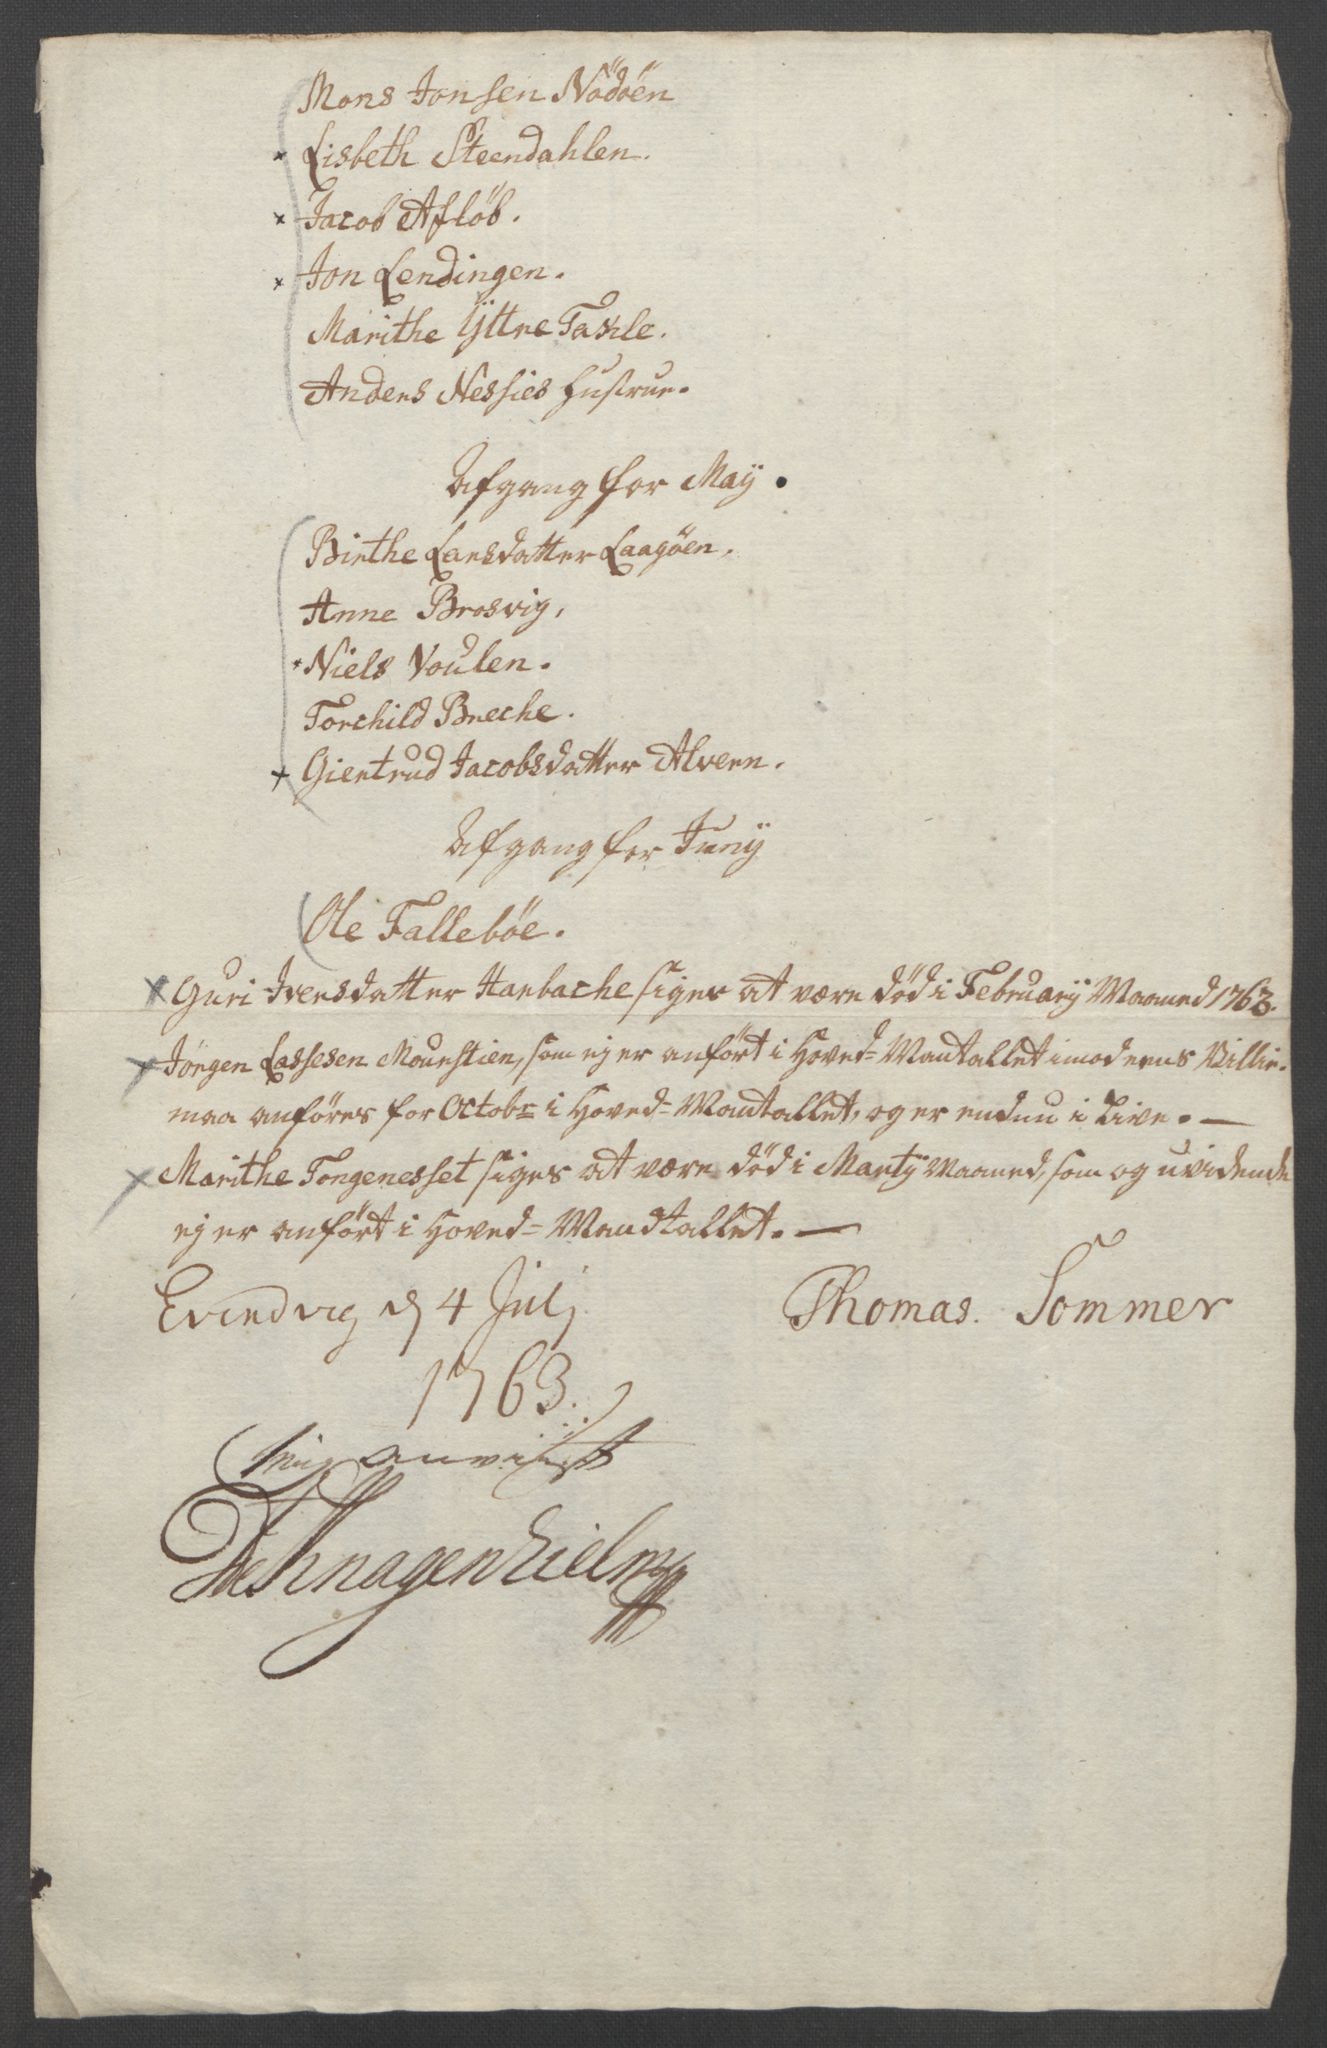 Mons Jonsen Nödöen
× Lisbeth Steendahlen.
× Jacob Aflöb.
× Jon Lendingen.
Marithe Yttre Takle.
Anders Nessies Hustrue.
Afgang for Maÿ.
Birthe Larsdatter Laagöen.
Anne Brosvig,
× Niels Voulen.
Torchild Breche.
× Giertrud Jacobsdatter Alveren.
Afgang for Junÿ
Ole Falleböe.
× Guri Iversdatter Haebache siges at være död i Februarÿ Maaned 1763.
× Jörgen Lassesen Mourstien, som ej er anfört i Hoved-Mantallet imod
maa anföres for Octobr i Hoved-Mantallet, og er endnu i Live. —
× Marithe Tongenesset siges at være död i Martÿ Maaned, som og uvidende
ej er anfört i Hoved-Mandtallet. —
Evindvig d 4 Julj Thomas. Sommer
1763.
anviist
de Knagenhielm